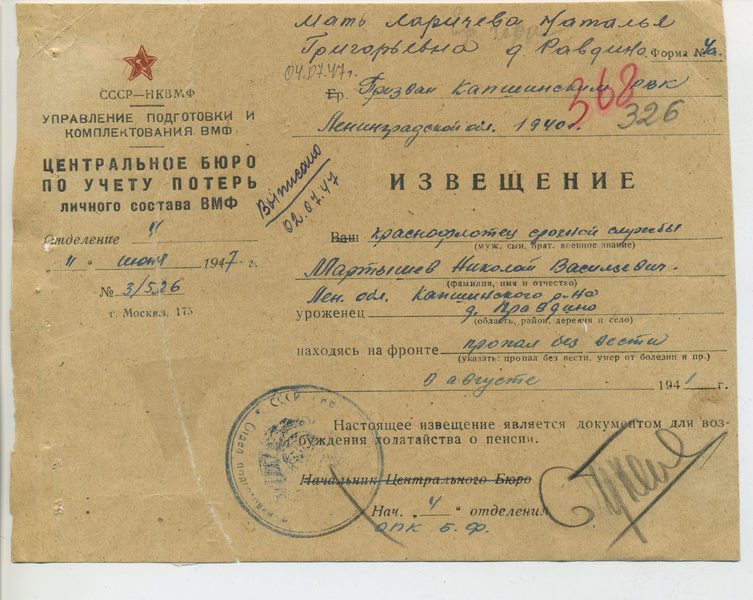 Мать Ларичева Наталья
Григорьевна д. Равдино Форма № 4а.
04.07.47г.
Гр. Призван Капшинским РВК
368
326
Ленинградской обл. 1940г.
СССР—НКВМФ
УПРАВЛЕНИЕ ПОДГОТОВКИ И
КОМПЛЕКТОВАНИЯ ВМФ
ЦЕНТРАЛЬНОЕ БЮРО
ПО УЧЕТУ ПОТЕРЬ
ЛИЧНОГО СОСТАВА ВМФ
Отделение 4
„11" июня 1947 г.
№ 3/526
г. Москва, 175
Выписано
02.07.47
ИЗВЕЩЕНИЕ
Ваш краснофлотец срочной службы
(муж, сын, брат, военное звание)
Мартышев Николай Васильевич.
(фамилия, имя и отчество)
Лен. обл. Капшинского р-на
уроженец д. Правдино
(область, район, деревня и село)
находясь на фронте пропал без вести
(указать: пропал без вести, умер от болезни и пр.)
в августе 1941 г.
Настоящее извещение является документом для воз-
буждения ходатайства о пенсии.
Начальник Центрального Бюро
Нач. „4" отделения
ОПК Б.Ф.
СССР